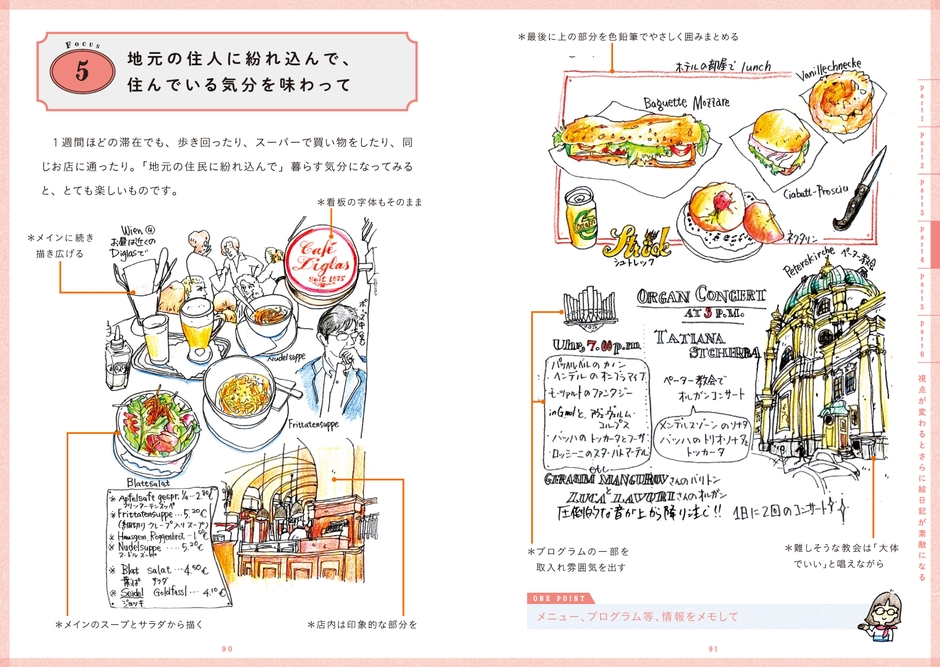 Focus
5
地元の住人に紛れ込んで、
住んでいる気分を味わって
１週間ほどの滞在でも、歩き回ったり、スーパーで買い物をしたり、同
じお店に通ったり。「地元の住民に紛れ込んで」暮らす気分になってみる
と、とても楽しいものです。
＊看板の字体もそのまま
＊メインに続き
描き広げる
Wien ④
お昼は近くの
Diglasで
Café
Diglas
Seit 1875
Nudelsuppe
Frittatensuppe
Blattsalat
＊Apfelsaft gespr. ¼ …2.90€
＊Frittatensuppe …5.20€
(糸田切り クレープ入りスープ)
＊Nudelsuppe ....5.20€
ヌードルスープ
＊Blat salat …4.50€
葉っぱ サラダ
＊Seidel Goldfassl … 4.10€
ジョッキ
＊メインのスープとサラダから描く
＊店内は印象的な部分を
90
＊最後に上の部分を色鉛筆でやさしく囲みまとめる
ホテルの部屋で lunch
Vanillechnecke
Baguette Mozzare
Ciabatt-Prosciu
ネクタリン
Strude
シュトレック
Peterskirche ペーター教会
ORGAN CONCERT
AT 3 P.M.
TATIANA
STCHERBA
Uhr, 7.00 p.m
パッヘルベルの カノン
ヘンデルの オンブラマイフ
モーツァルトのファンタジー
in Gmollと、アヴェヴェルム
コルプス
・バッハの トッカータとフーガ
・ロッシーニのスターバトマーテル
etc
ペーター教会で
オルガンコンサート
メンデルスゾーンのソナタ
バッハのトリオソナタ
トッカータ
GERASIM MANGUROV さんのバリトン
と
LUCA LAVURI さんのオルガン
圧倒的な音が上から降り注ぐ!! 1日に2回のコンサート
＊プログラムの一部を
取入れ雰囲気を出す
＊難しそうな教会は「大体
でいい」と唱えながら
ONE POINT
メニュー、プログラム等、情報をメモして
91
part1
part2
part3
part4
part5
part6
視点が変わるとさらに絵日記が素敵になる